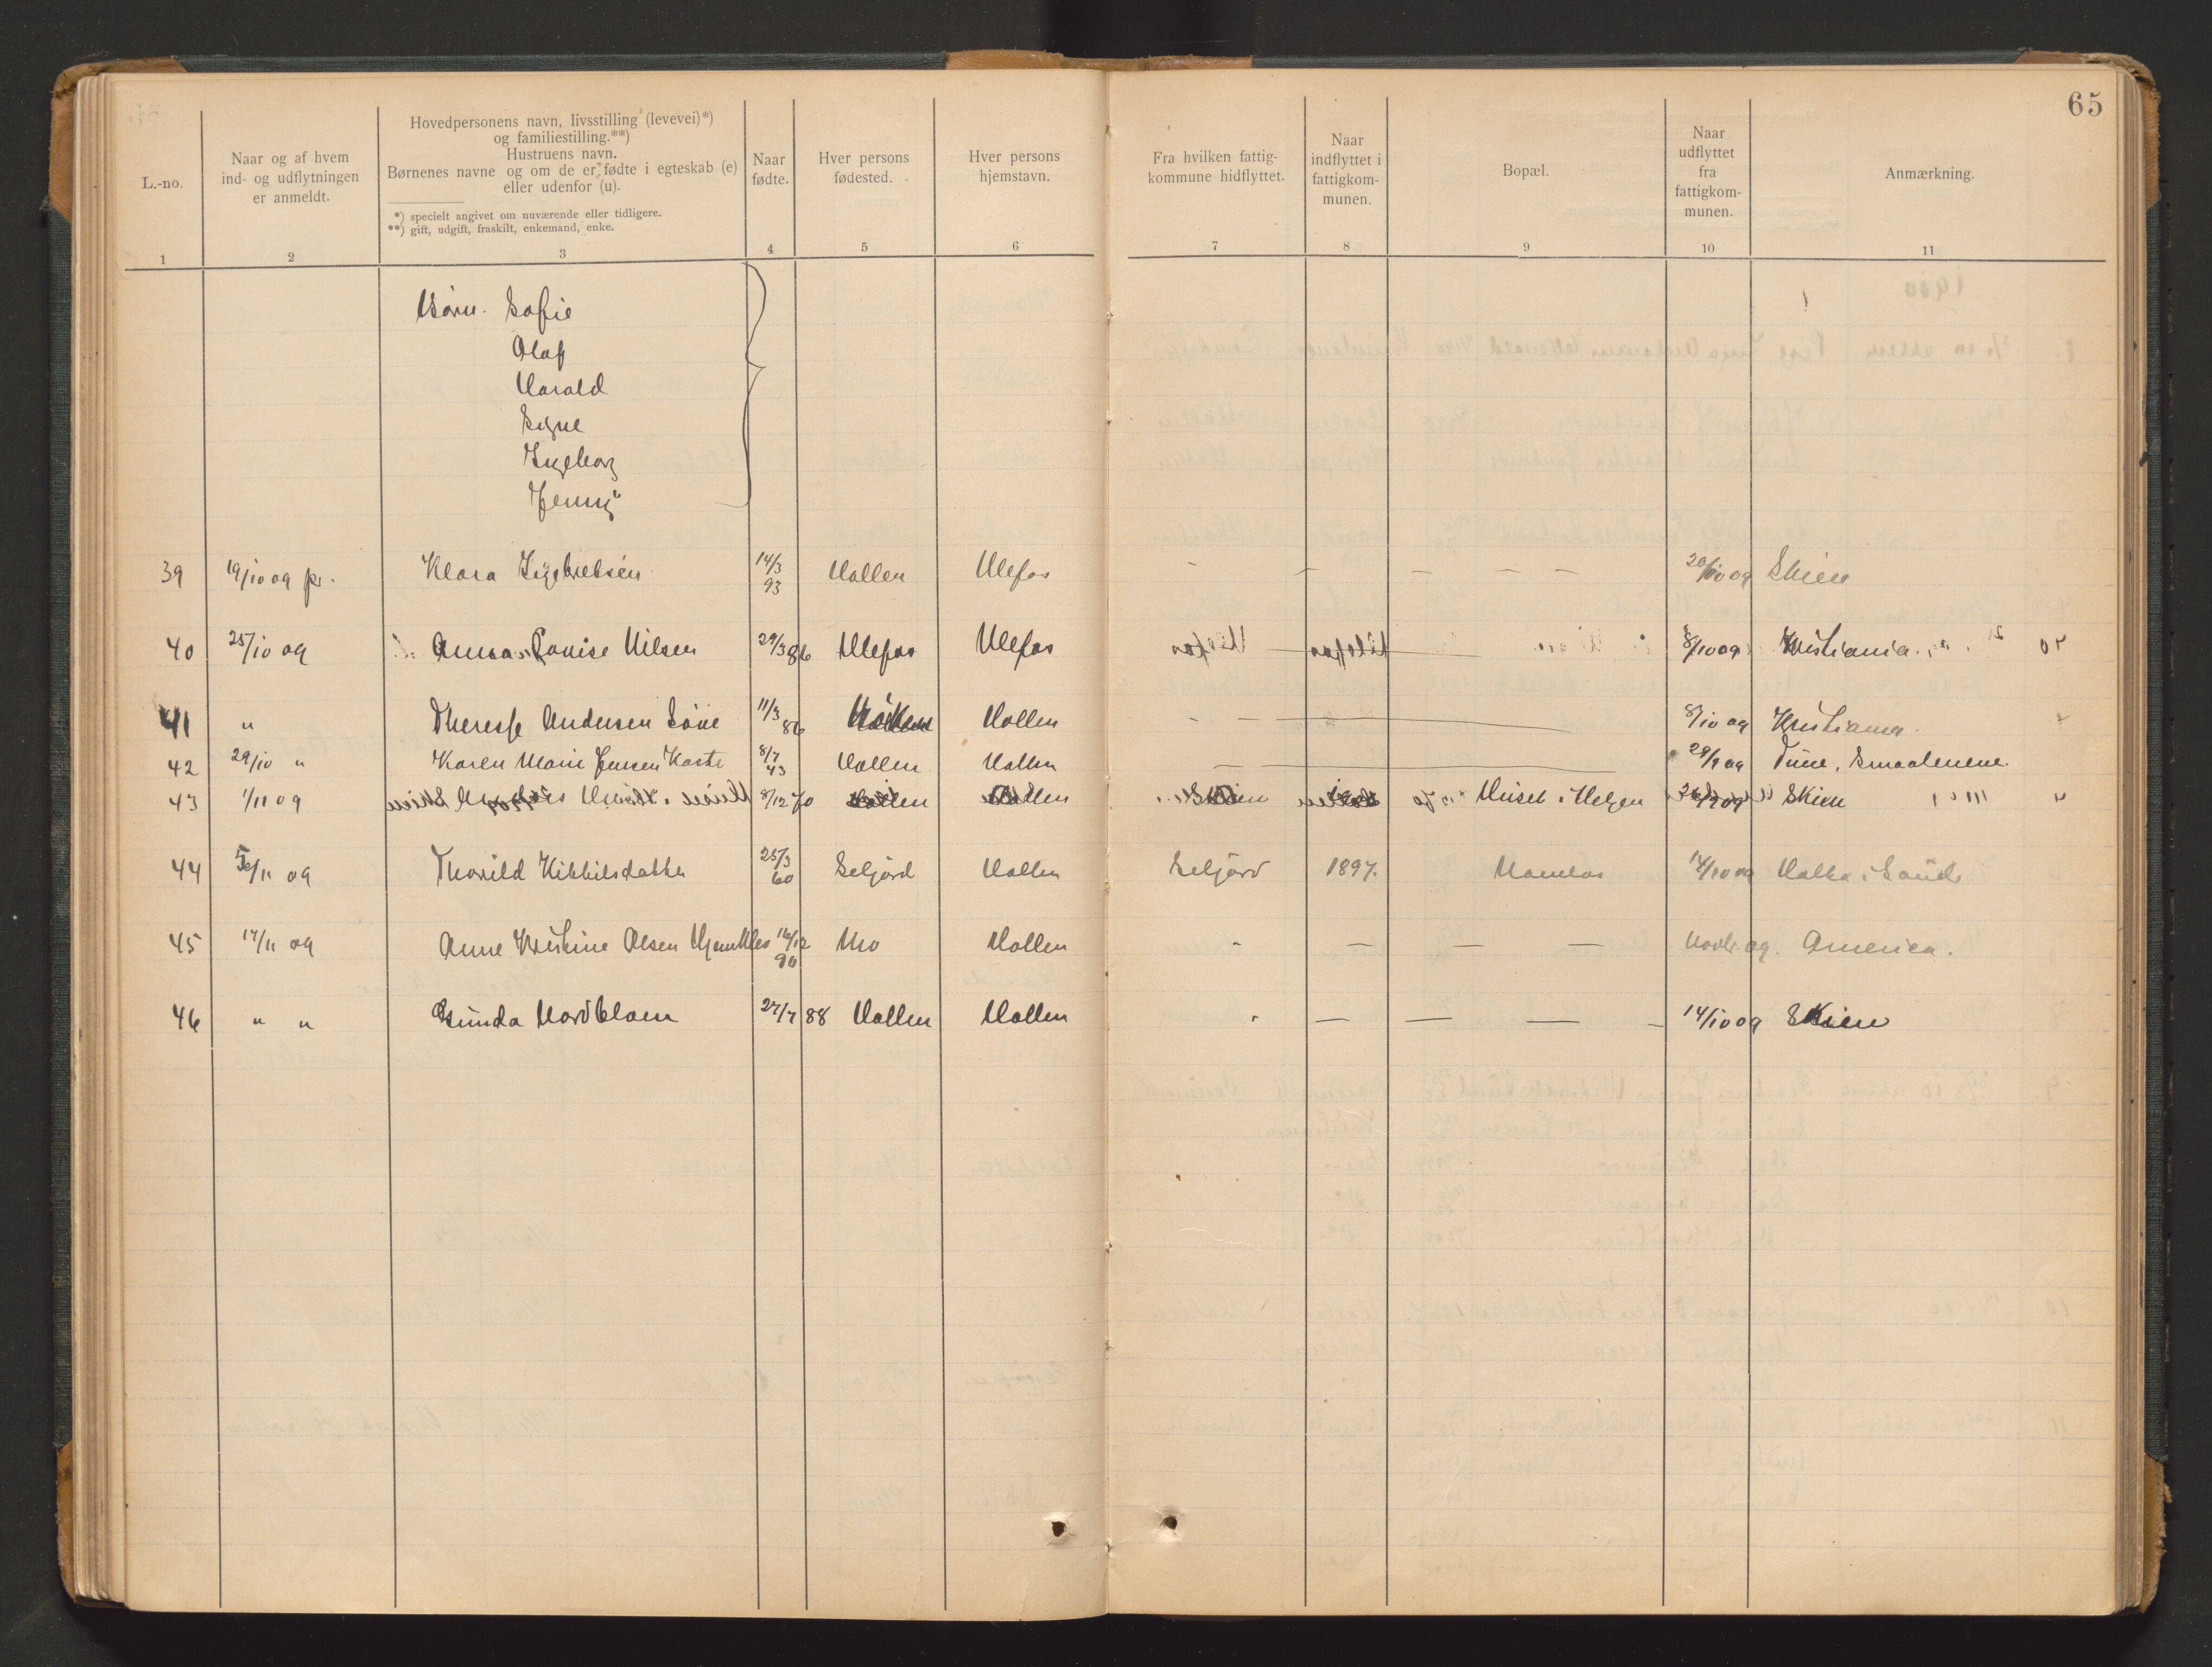 65
L.-no.
Naar og af hvem
ind- og udflytningen
er anmeldt.
Hovedpersonens navn, livsstilling (levevei)*)
og familiestilling.**)
Hustruens navn.
Børnenes navne og om de er fødte i egteskab (e)
eller udenfor (u).
*) specielt angivet om nuværende eller tidligere.
**) gift, udgift, fraskilt, enkemand, enke.
Naar
fødte.
Hver persons
fødested.
Hver persons
hjemstavn.
Fra hvilken fattig-
kommune hidflyttet.
Naar
indflyttet i
fattigkom-
munen.
Bopæl.
Naar
udflyttet
fra
fattigkom-
munen.
Anmærkning.
1 2 3 4 5 6 7 8 9 10 11
Børn. Sofie
Olaf
Harald
Signe
Ingeborg
Jenny
39 19/10 09 pr. Klara Ingebretsen 14/3 93 Hollen Ulefos - - - - - 20/10 09 Skien
40 25/10 09 Anna Lovise Nilsen 29/3 86 Ulefos Ulefos — 8/10 09 Kristiania.
41 " Therese Andersen Søve 11/3 86 Hollen - — 8/10 09 Kristiania.
42 29/10 " Karen Marie Jensen Kaste 8/7 43 Hollen Hollen — 29/9 09 Tune, Smaalenene.
43 1/11 09 8/12 70 Hollen Hollen Skien Huset i Helgen 09 Skien
44 09 Thorild Kittilsdatter 25/3 60 Seljord Hollen Seljord 1897. Namlos 14/10 09 Holla i Saude
45 17/11 09 Anne Kristine Olsen 16/12 90 Mo Hollen - — — — Novbr 09. America.
46 " " Gunda Nordblom 27/7 88 Hollen Hollen - — — — - 14/10 09 Skien